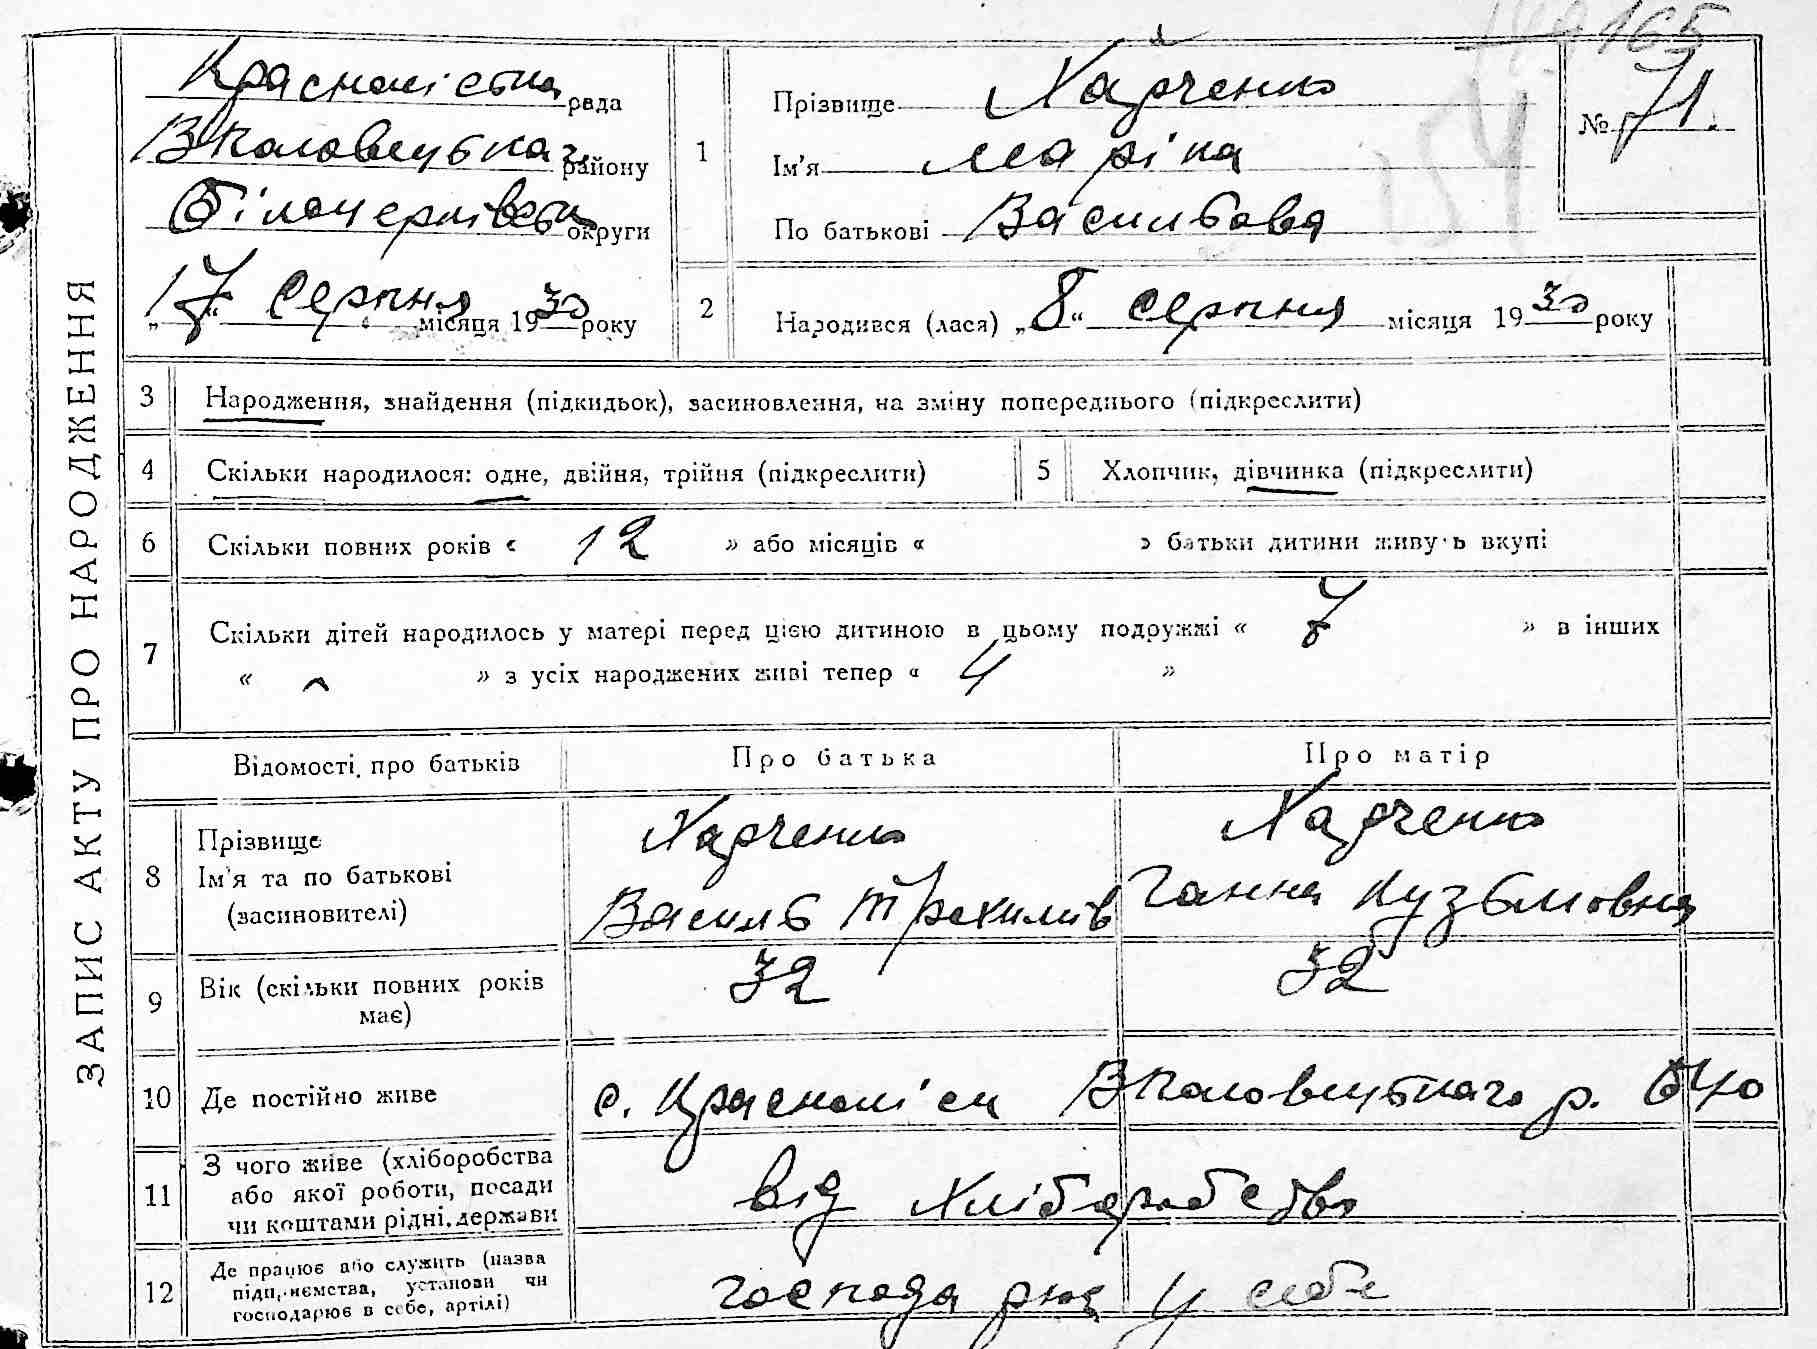 165
ЗАПИС АКТУ ПРО НАРОДЖЕННЯ
Краснолісська рада
В Половецького району
Білоцерківської округи
„17“ серпня місяця 1930 року
1 Прізвище Харченко
Ім'я Маріна
По батькові Васильовна
№ 71.
2 Народився (лася) „8“ серпня місяця 1930 року
3 Народження, знайдення (підкидьок), засиновлення, на зміну попереднього (підкреслити)
4 Скільки народилося: одне, двійня, трійня (підкреслити)
5 Хлопчик, дівчинка (підкреслити)
6 Скільки повних років « 12 » або місяців « » батьки дитини живуть вкупі
7 Скільки дітей народилось у матері перед цією дитиною в цьому подружжі « 7 » в інших
« » з усіх народжених живі тепер « 4 »
Відомості про батьків Про батька Про матір
8 Прізвище Харченко Харченко
Ім'я та по батькові
(засиновителі) Василь Трохимів Ганна Кузьмовна
9 Вік (скільки повних років має) 32 32
10 Де постійно живе с. Красноліси В Половецького р. БЦО
11 З чого живе (хліборобства
або якої роботи, посади
чи коштами рідні, держави від хліборобство
12 Де працює або служить (назва
підприємства, установи чи
господарює в себе, артілі) господарює у себе